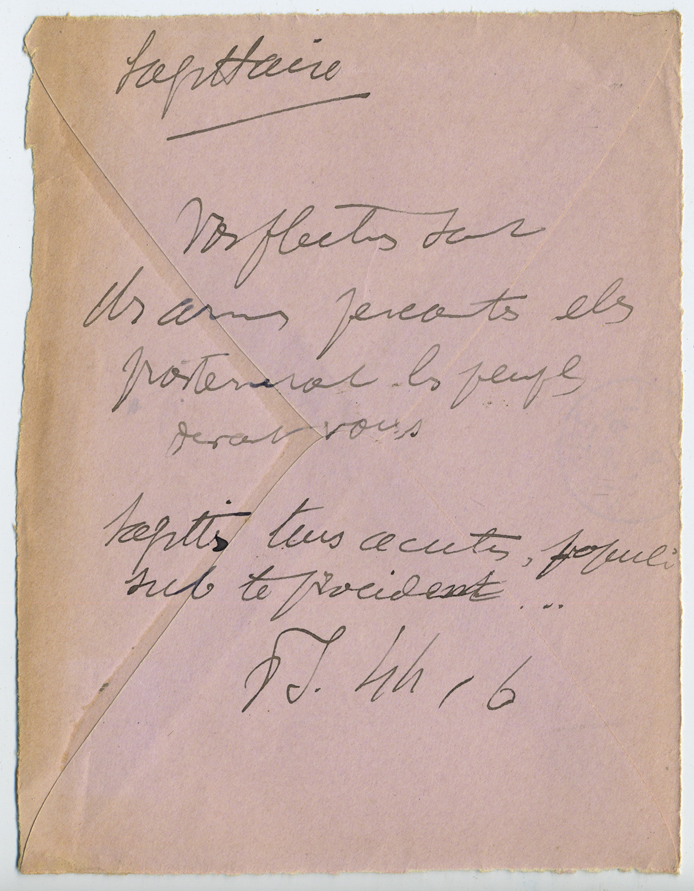 Sagittaire
Vos flèches sont
des armes perçantes elles
prosternent les peuples
devant vous
Sagittis tuis acutis, populi
sub te procident...
PS. 44, 6